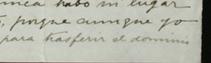 nunca hubo ni lugar
, porque aunque yo
para trasferir el dominio